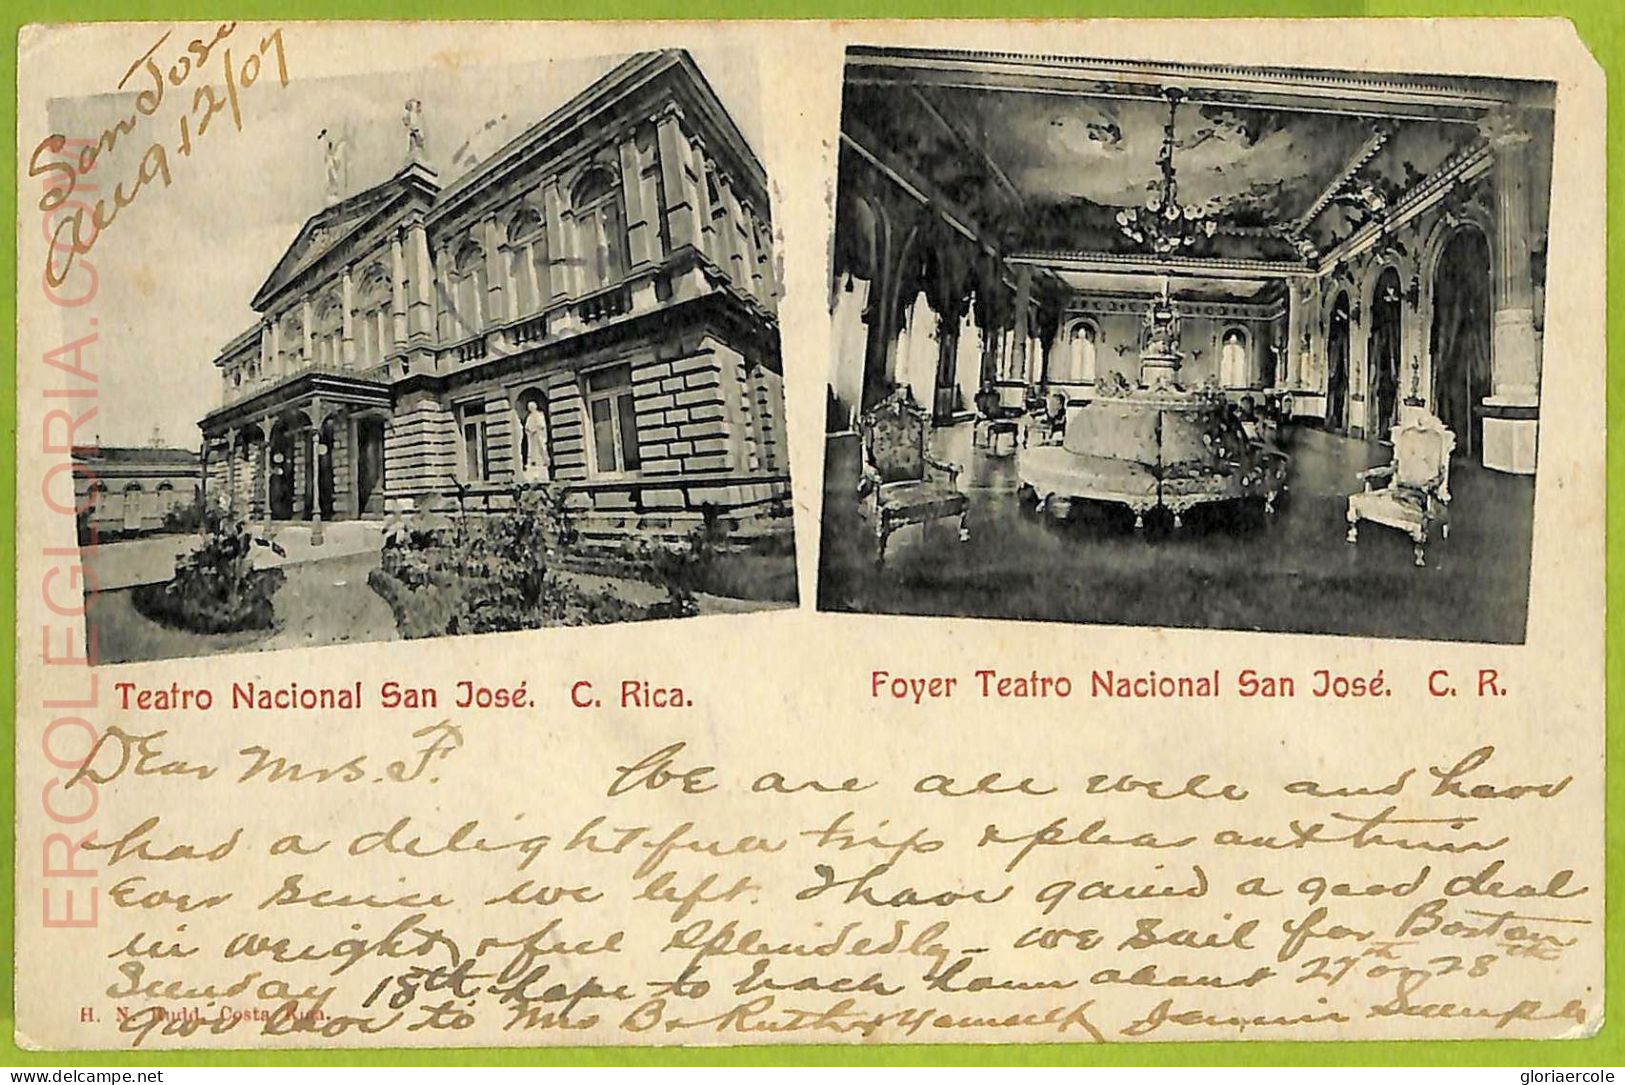 San Jose
Aug 12/07
Teatro Nacional San José. C. Rica.
Foyer Teatro Nacional San José. C. R.
Dear Mrs. F.
We are all well and have
had a delightful trip & pleasant time
Ever since we left. I have gained a good deal
in weight & feel splendedly - we sail for Boston
Sunday 18th hope to reach home about 27th or 28th
Give love to Mrs B. & Ruth & yourself Jennie
H. N. Rudd, Costa Rica.
ERCOLEGLORIA.COM
delcampe.net
gloriaercole